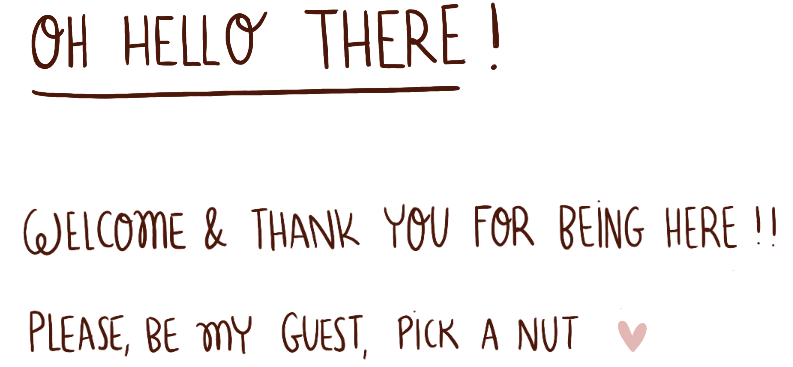 OH HELLO THERE !
WELCOME & THANK YOU FOR BEING HERE !!
PLEASE, BE MY GUEST, PICK A NUT